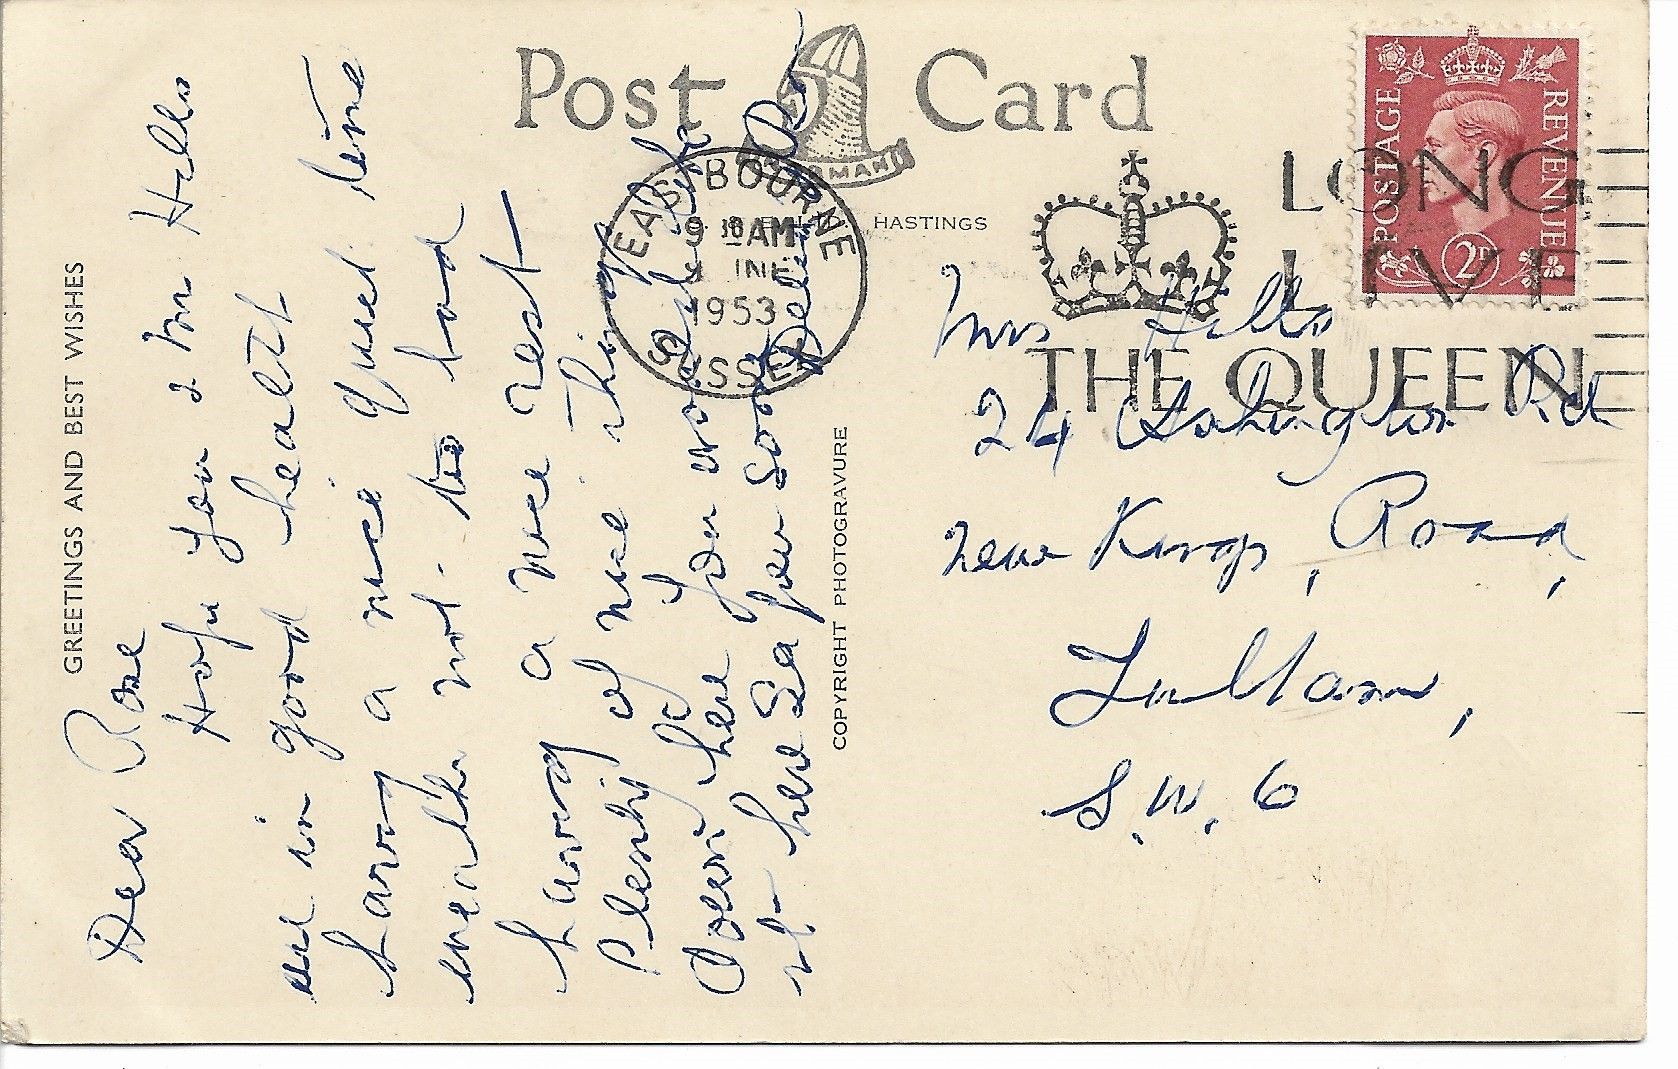 Post Card
HASTINGS
GREETINGS AND BEST WISHES
COPYRIGHT PHOTOGRAVURE
EASTBOURNE
9 30 AM
JNE
1953
SUSSEX
LONG
LIVE
THE QUEEN
POSTAGE
REVENUE
2D
Dear Rose
Hope you & Mr Hills
are in good health
having a nice quiet time
weather not too bad
having a nice rest
Plenty of nice things
down here you would like
it here See you soon
Mrs Hills
24 Ashington Rd
New Kings Road,
Fulham,
S.W.6